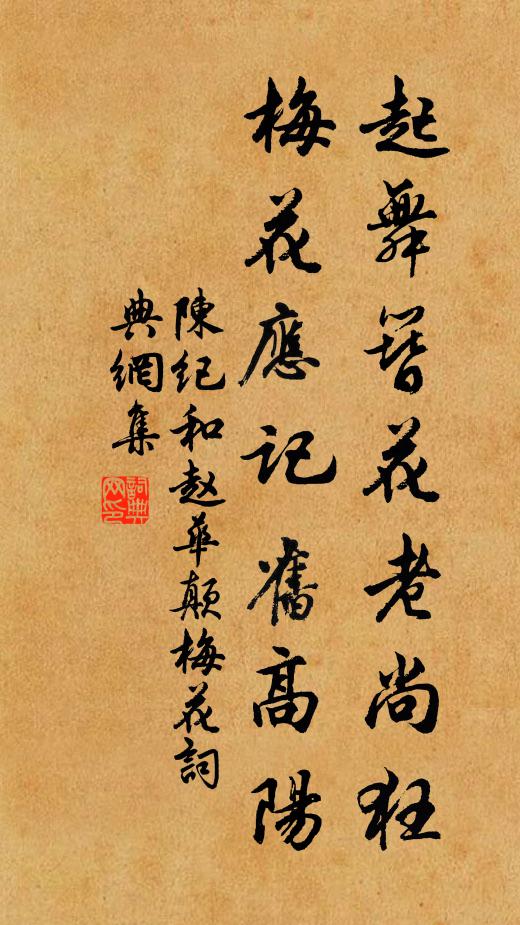 起舞簪花老尚狂
梅花應記舊高陽
陳紀和赵華顛梅花詞
典網集
詞典网印